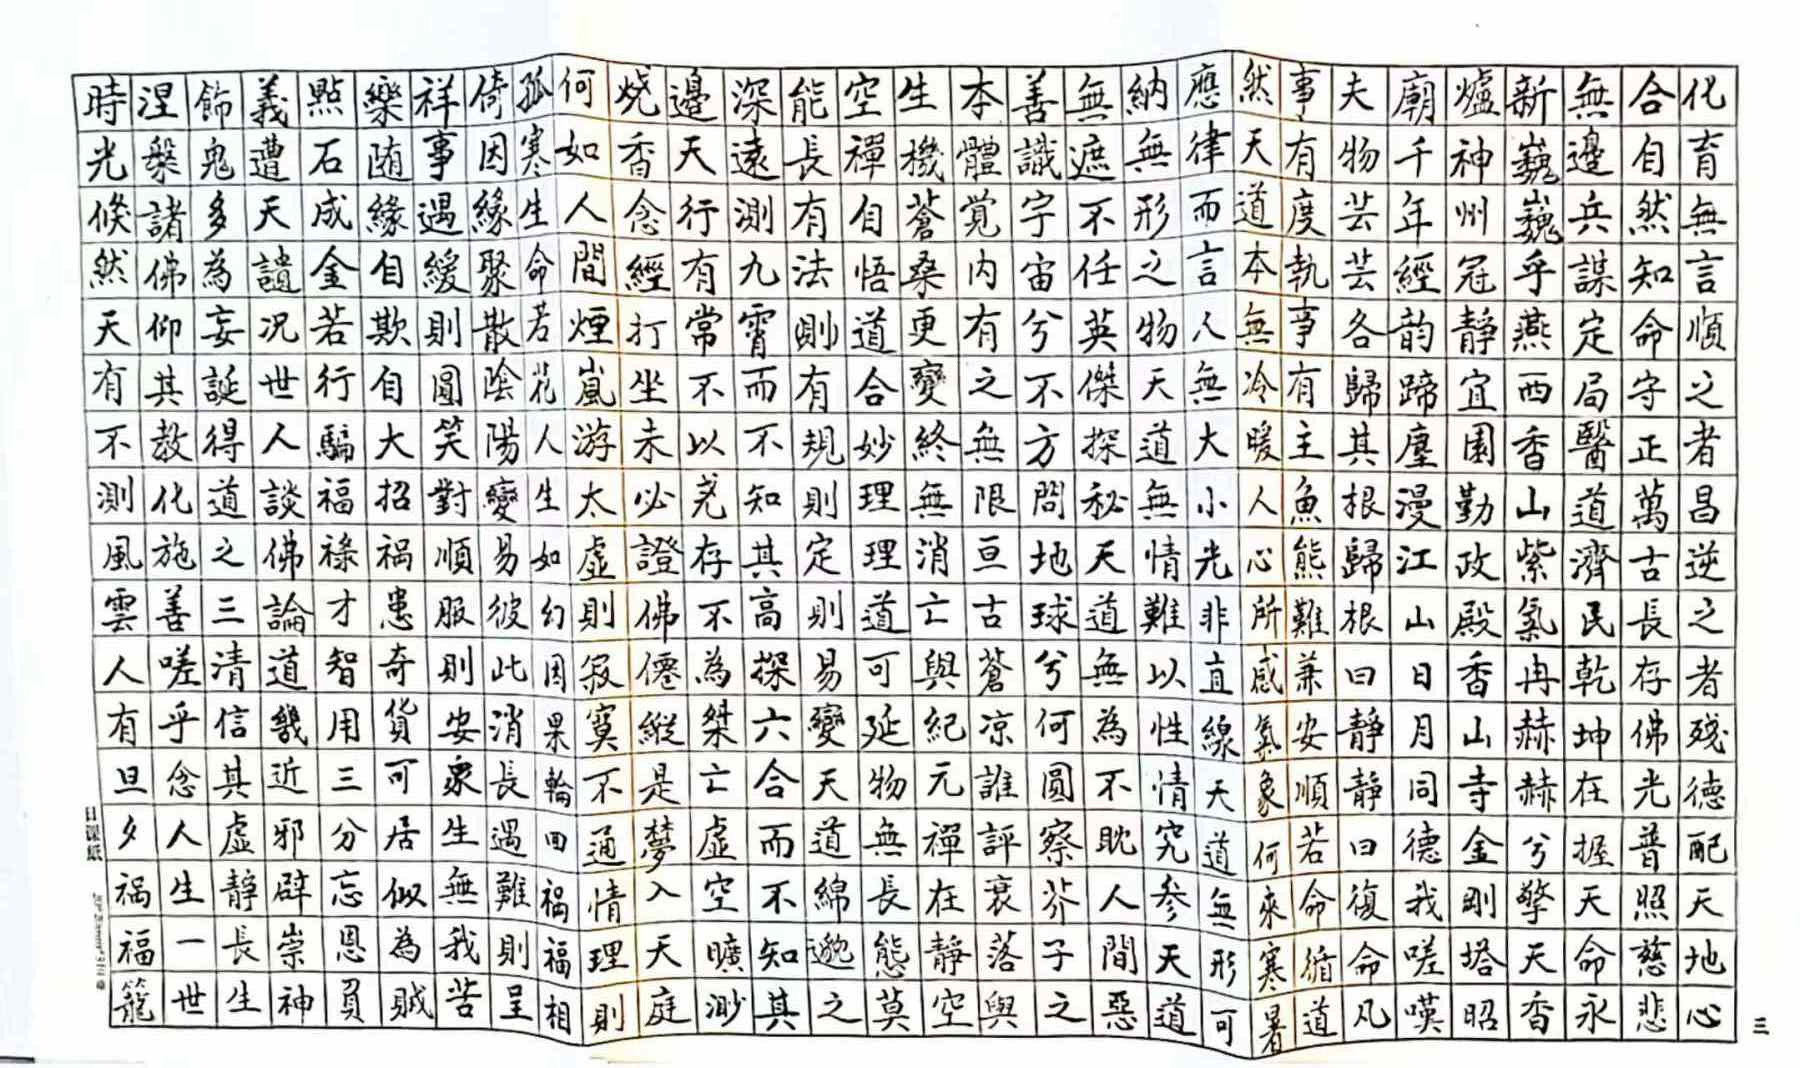 化育無言順之者昌逆之者殘德配天地心
合自然知命守正萬古長存佛光普照慈悲
無邊兵謀定局醫道濟民乾坤在握天命永
新巍巍乎燕西香山紫氣冉赫赫兮擎天香
爐神州冠靜宜園勤政殿香山寺金剛塔昭
廟千年經韵蹄塵漫江山日月同德我嗟嘆
夫物芸芸各歸其根歸根曰靜靜曰復命凡
事有度執事有主魚熊難兼安順若命循道
然天道本無冷暖人心所感氣象何來寒暑
應律而言人無大小光非直線天道無形可
納無形之物天道無情難以性情究參天道
無遮不任英傑探秘天道無為不耽人間惡
善識宇宙兮不方問地球兮何圓察芥子之
本體覺內有之無限亘古蒼凉誰評衰落與
生機蒼桑更變終無消亡與紀元禪在靜空
空禪自悟道合妙理理道可延物無長態莫
能長有法則有規則定則易變天道綿邈之
深遠測九霄而不知其高探六合而不知其
邊天行有常不以堯存不為桀亡虛空曠渺
燒香念經打坐未必證佛僊縱是夢入天庭
何如人間煙嵐游太虛則寂寞不通情理則
孤寒生命若花人生如幻因果輪回禍福相
倚因緣聚散陰陽變易彼此消長遇難則呈
祥事遇緩則圓笑對順服則安衆生無我苦
樂随緣自欺自大招禍患奇貨可居似為賊
點石成金若行騙福祿才智用三分忘恩負
義遭天譴況世人談佛論道幾近邪辟崇神
飾鬼多為妄誕得道之三清信其虛靜長生
涅槃諸佛仰其教化施善嗟乎念人生一世
時光倏然天有不測風雲人有旦夕禍福籠
三
日課紙